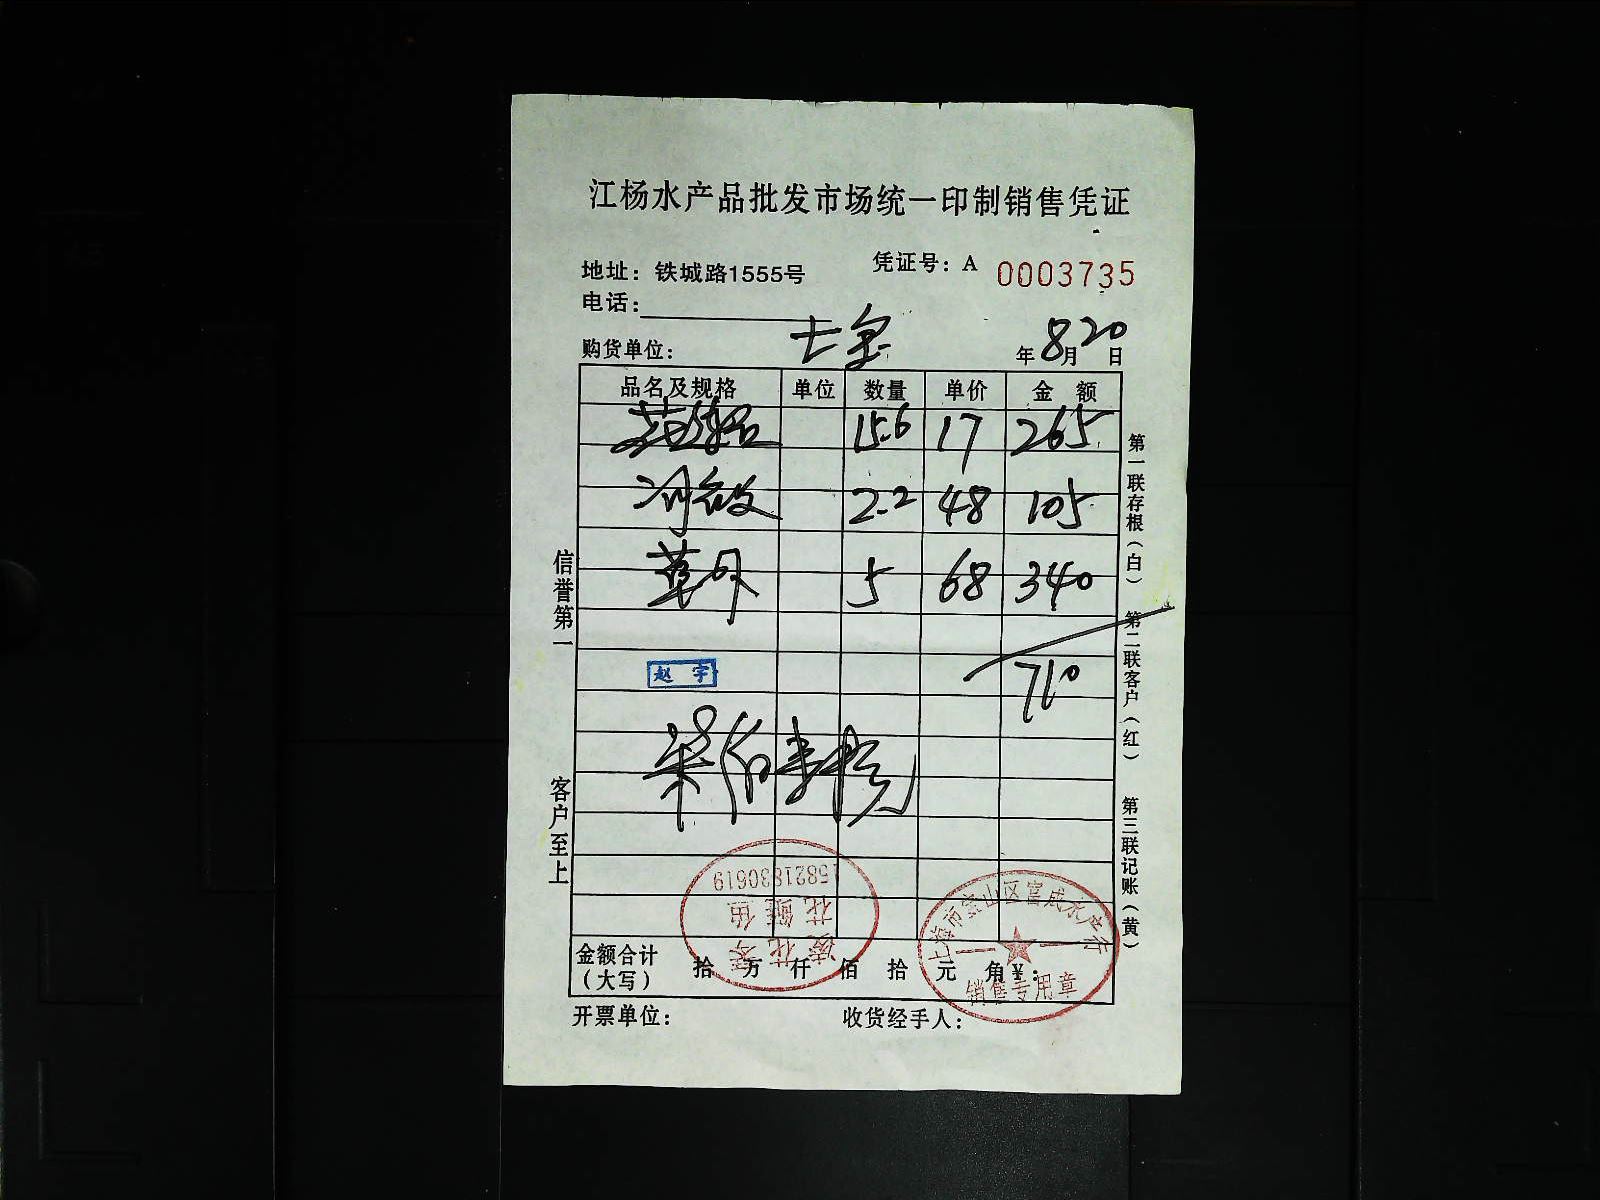 江杨水产品批发市场统一印制销售凭证
地址：铁城路1555号 凭证号：A 0003735
电话：
购货单位：七宝 年8月20日
品名及规格 单位 数量 单价 金额
15.6 17 265
2.2 48 105
5 68 340
710
赵宇
信誉第一
客户至上
第一联存根（白） 第二联客户（红） 第三联记账（黄）
15821830619
上海市宝山区富成水产行
销售专用章
金额合计（大写） 拾 万 仟 佰 拾 元 角¥：
开票单位： 收货经手人：